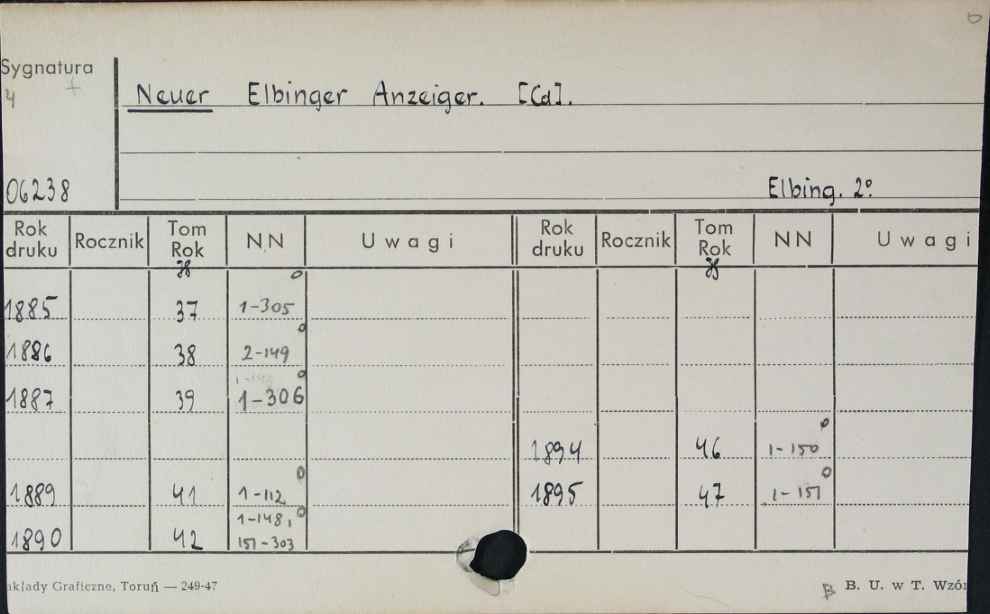 Sygnatura
4
Neuer Elbinger Anzeiger. [Cd].
06238
Elbing. 2º
Rok druku Rocznik Tom Rok NN Uwagi Rok druku Rocznik Tom Rok NN Uwagi
1885 37 1-305
1886 38 2-149
1887 39 1-306
1894 46 1-150
1889 41 1-112 1895 47 1-151
1890 42 1-148, 151-303
akłady Graficzne, Toruń — 249-47
B. U. w T. Wzór